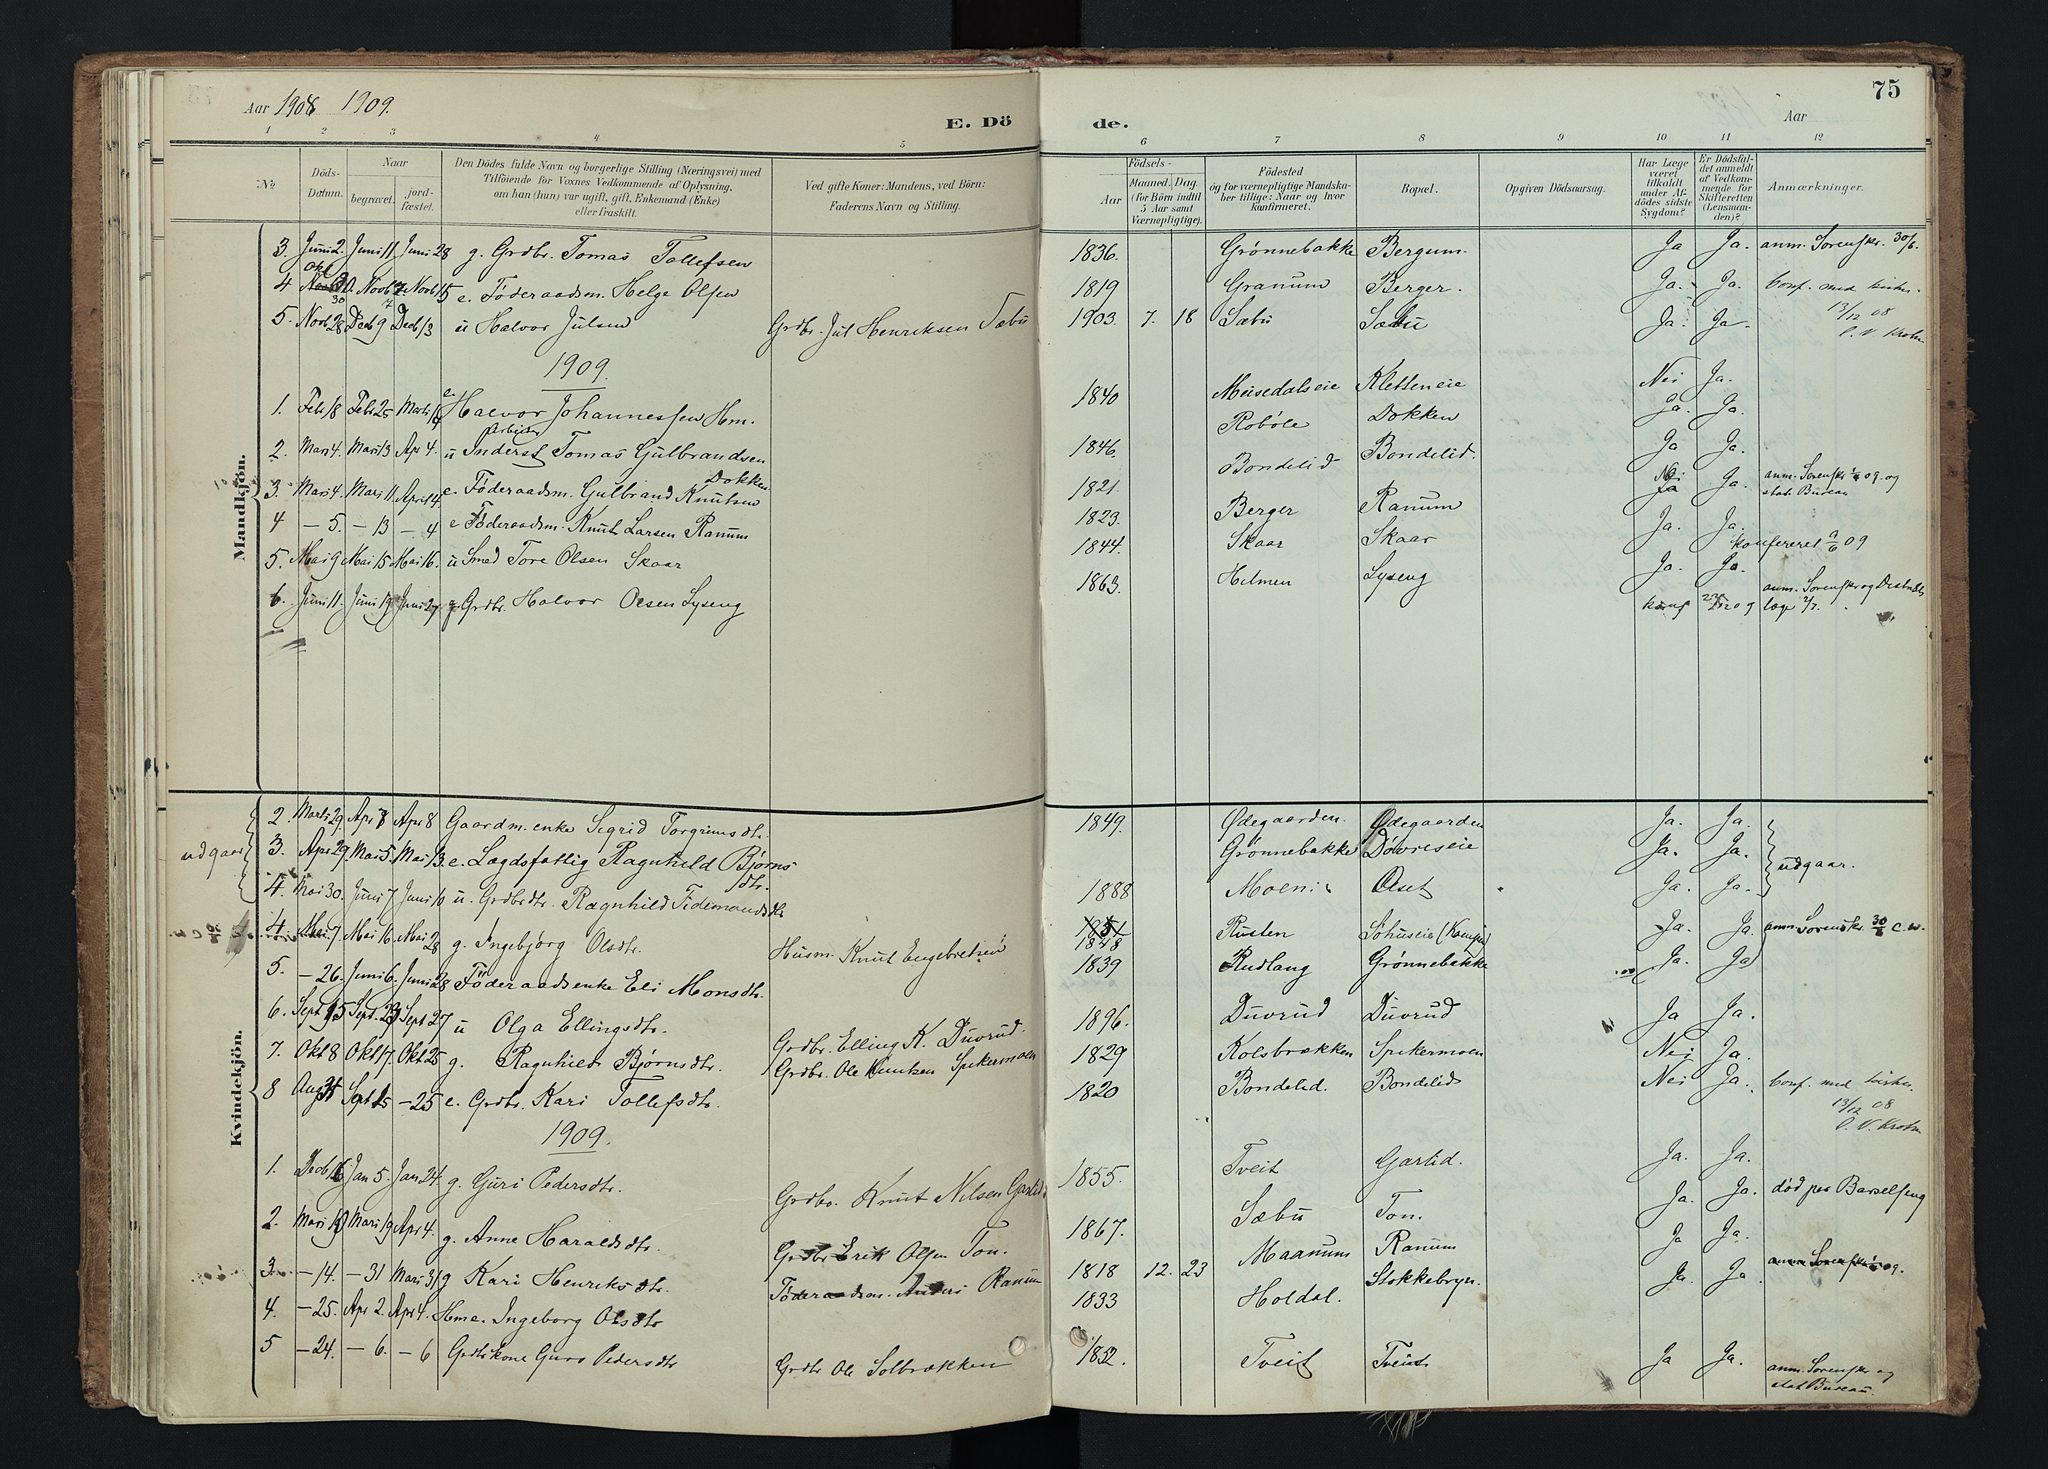 Aar 1908 1909.
E. Dö
de.
Aar
75
1 2 3 4 5 6 7 8 9 10 11 12
No
Döds-Datum.
Naar
begravet.
jordfæstet.
Den Dödes fulde Navn og borgerlige Stilling (Næringsvei) med
Tilföiende for Voxnes Vedkommende af Oplysning,
om han (hun) var ugift, gift, Enkemand (Enke)
eller fraskilt.
Ved gifte Koner: Mandens, ved Börn:
Faderens Navn og Stilling.
Födsels-
Aar
Maaned. Dag.
(for Börn indtil
5 Aar samt
Værnepligtige).
Födested
og for værnepligtige Mandskaber tillige: Naar og hvor
konfirmeret.
Bopæl.
Opgiven Dödsaarsag.
Har Læge
været
tilkaldt
under Afdödes sidste
Sygdom?
Er Dödsfaldet anmeldt
af Vedkommende for
Skifteretten
(Lensmanden)?
Anmærkninger.
Mandkjön.
3. Juni 2. Juni 11. Juni 28 g. Grdbr. Tomas Tollefsen 1836. Grønnebakke Bergum. Ja Ja. anm. Sorenskr. 30/6.
4 Okt 30 Novb 7. Novb 15 e. Föderaadsm. Helge Olsen 1819 Granum Berger. Ja. Ja. Conf. med kirke-
5. Novb 28 Decb 9 Decb 13 u Halvor Julsen Grdbr. Jul Henriksen Sæbu 1903 7. 18 Sæbu Sæbu Ja. Ja. 13/12 08
C. V. Krohn
1909.
1. Febr 18 Febr 25 Marts 14 e. Halvor Johannessen Hm. 1840 Meisedalseie Kletteneie Nei Ja.
Robøle Dokken Ja. Ja.
2. Mars 4. Mars 13 Apr 4. u Inderst Arbeider Tomas Gulbrandsen Dokken 1846. Bondelid Bondelid. Ja Ja.
3. Mars 4. Mars 11. April 4. e. Föderaadsm. Gulbrand Knutsen 1821. Berger Ranum Ja Ja. anm. Sorenskr. 09. og
stat. Bureau
4 — 5. — 13 — 4 e Föderaadsm. Knut Larsen Ranum 1823. Skaar Skaar Ja. Ja.
konfereret 9/6 09
5. Mai 9 Mai 15 Mai 16. u Smed Tore Olsen Skaar 1844. Helmen Lyseng Ja. Ja.
6. Juni 11. Juni 19 Juni 27 g. Grdbr. Halvor Olsen Lyseng 1863. anm. Sorenskr og Distrikts
læge 2/7.
Kvindekjön.
udgaar
2. Marts 29. Apr 8 Apr 8 Gaardm. enke Sigrid Torgrimsdtr. 1849. Ødegaarden. Ødegaarden Ja. Ja.
3. Apr 29. Mai 5. Mai 13. e. Lægdsfattig Ragnhild Bjørnsdtr. Grønnebakke Dövreseie Ja. Ja. udgaar.
4. Mai 30. Juni 7 Juni 10 u. Grdbrdtr. Ragnhild Tidemandsdtr 1888 Moen Olset Ja. Ja.
4. Mai 7. Mai 16. Mai 28 g. Ingebjørg Olsdtr. Husm. Knut Engebretsen 1848 Rusten Söhuseie (Kampe) Ja. Ja. anm. Sorenskr. 30/6 C. W.
5. — 26. Juni 6. Juni 28 Föderaadsenke Eli Monsdtr. 1839 Rudlang Grønnebakke Ja. Ja
6. Sept 15 Sept. 23 Sept 27 u Olga Ellingsdtr. Grdbr. Elling K. Duvrud. 1896. Duvrud Duvrud Ja Ja.
7. Okt 8 Okt 17. Okt 25 g. Ragnhild Bjørnsdtr. Grdbr. Ole Knutsen Spikermoen 1829 Kolsbrækken Spikermoen Nei Ja.
8 Aug 31 Sept 15 — 25 e. Grdbr. Kari Tollefsdtr. 1820 Bondelid. Bondelid Nei Ja. Conf. med kirke.
13/12 08
C. V. Krohn
1909.
1. Decb 16 Jan 5. Jan 24 g. Guri Pedersdtr. Grdbr. Knut Nilsen Garlid 1855. Tveit Garlid. Ja. Ja.
2. Mars 13 Mars 19 Apr 4. g. Anne Haraldsdtr. Grdbr Erik Olsen Ton. 1867. Sæbu Ton. Ja. Ja. død per Barselseng
3. — 14. — 31 Mars 31 g Kari Henriksdtr. Föderaadsm. Anders Ranum 1818 12. 23 Maanum Ranum Ja Ja.
4. — 25. Apr 2. Apr 4. Hm e. Ingeborg Olsdtr 1833 Holdal. Stokkebryn. Ja. Ja
5 — 24. — 6. — 6 Grdbkone Guro Pedersdtr Grdbr Ole Solbrækken 1852. Tveit Tveit Ja Ja. anm. Sorenskr og
stat Bureau.